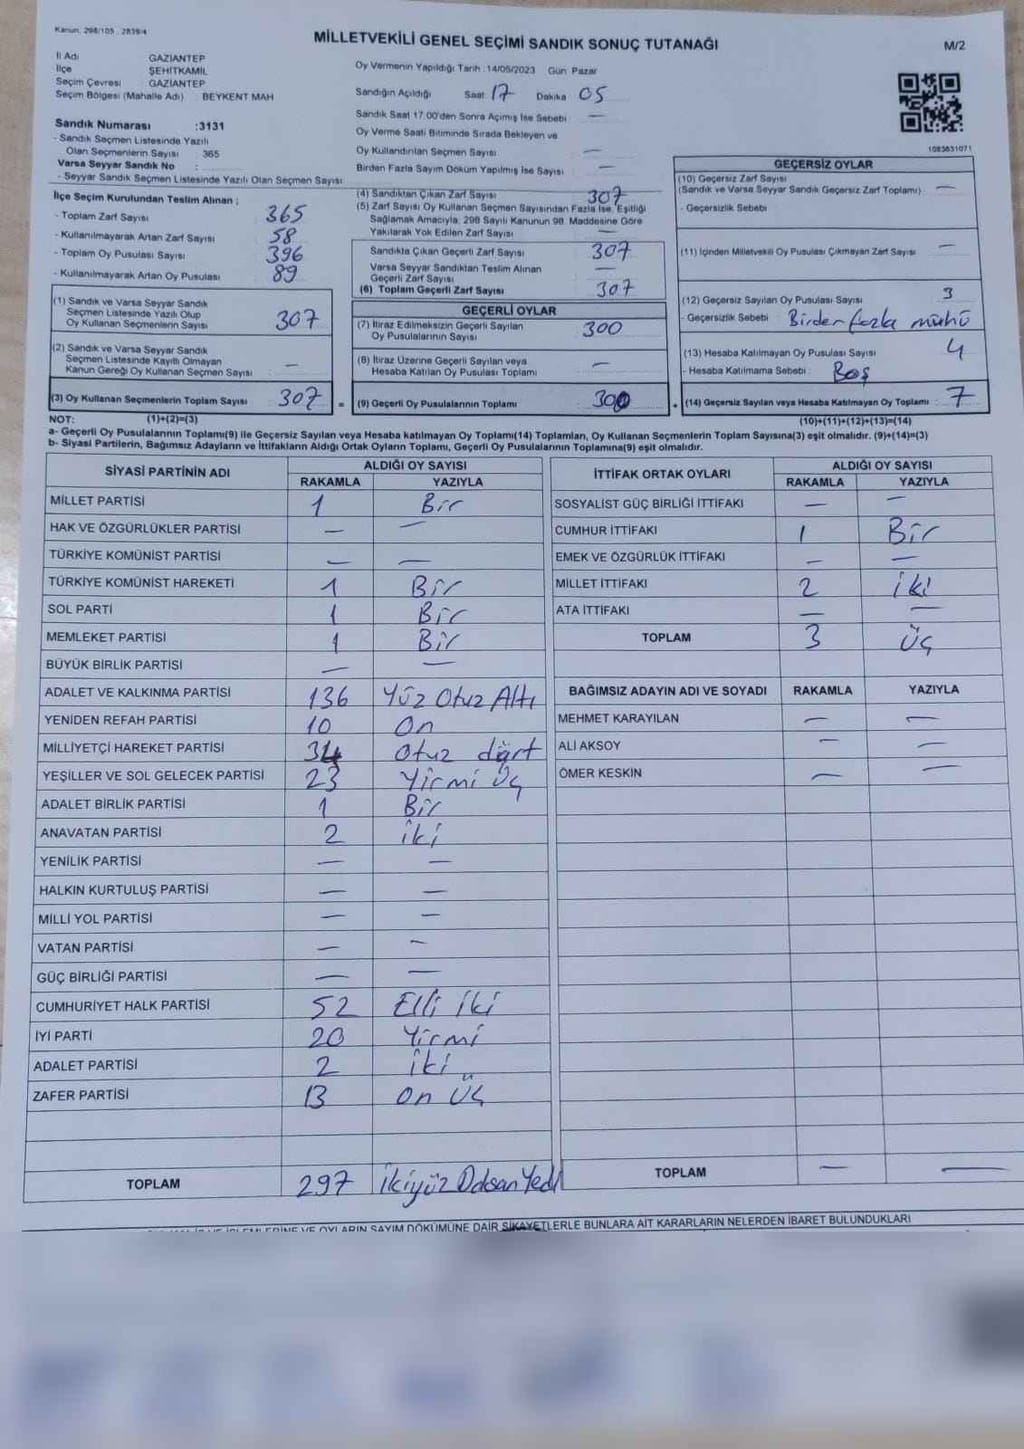 Kanun: 298/105 , 2839/4
MİLLETVEKİLİ GENEL SEÇİMİ SANDIK SONUÇ TUTANAĞI
M/2
İl Adı GAZİANTEP
İlçe ŞEHİTKAMİL
Seçim Çevresi GAZİANTEP
Seçim Bölgesi (Mahalle Adı) BEYKENT MAH
Sandık Numarası :3131
- Sandık Seçmen Listesinde Yazılı
Olan Seçmenlerin Sayısı : 365
Varsa Seyyar Sandık No :
- Seyyar Sandık Seçmen Listesinde Yazılı Olan Seçmen Sayısı
Oy Vermenin Yapıldığı Tarih : 14/05/2023 Gün Pazar
Sandığın Açıldığı Saat 17 Dakika 05
Sandık Saat 17.00'den Sonra Açılmış İse Sebebi —
Oy Verme Saati Bitiminde Sırada Bekleyen ve
Oy Kullandırılan Seçmen Sayısı —
Birden Fazla Sayım Döküm Yapılmış İse Sayısı —
1083631071
İlçe Seçim Kurulundan Teslim Alınan ;
- Toplam Zarf Sayısı 365
- Kullanılmayarak Artan Zarf Sayısı 58
- Toplam Oy Pusulası Sayısı 396
- Kullanılmayarak Artan Oy Pusulası 89
(1) Sandık ve Varsa Seyyar Sandık
Seçmen Listesinde Yazılı Olup
Oy Kullanan Seçmenlerin Sayısı 307
(2) Sandık ve Varsa Seyyar Sandık
Seçmen Listesinde Kayıtlı Olmayan
Kanun Gereği Oy Kullanan Seçmen Sayısı —
(3) Oy Kullanan Seçmenlerin Toplam Sayısı 307 =
(4) Sandıktan Çıkan Zarf Sayısı 307
(5) Zarf Sayısı Oy Kullanan Seçmen Sayısından Fazla İse, Eşitliği
Sağlamak Amacıyla, 298 Sayılı Kanunun 98. Maddesine Göre
Yakılarak Yok Edilen Zarf Sayısı —
Sandıkta Çıkan Geçerli Zarf Sayısı 307
Varsa Seyyar Sandıktan Teslim Alınan
Geçerli Zarf Sayısı —
(6) Toplam Geçerli Zarf Sayısı 307
GEÇERLİ OYLAR
(7) İtiraz Edilmeksizin Geçerli Sayılan
Oy Pusulalarının Sayısı 300
(8) İtiraz Üzerine Geçerli Sayılan veya
Hesaba Katılan Oy Pusulası Toplamı —
(9) Geçerli Oy Pusulalarının Toplamı 300 +
GEÇERSİZ OYLAR
(10) Geçersiz Zarf Sayısı
(Sandık ve Varsa Seyyar Sandık Geçersiz Zarf Toplamı) —
- Geçersizlik Sebebi
(11) İçinden Milletvekili Oy Pusulası Çıkmayan Zarf Sayısı —
(12) Geçersiz Sayılan Oy Pusulası Sayısı 3
- Geçersizlik Sebebi Birden fazla mühü
(13) Hesaba Katılmayan Oy Pusulası Sayısı 4
- Hesaba Katılmama Sebebi : Boş
(14) Geçersiz Sayılan veya Hesaba Katılmayan Oy Toplamı : 7
NOT: (1)+(2)=(3)
(10)+(11)+(12)+(13)=(14)
a- Geçerli Oy Pusulalarının Toplamı(9) ile Geçersiz Sayılan veya Hesaba katılmayan Oy Toplamı(14) Toplamları, Oy Kullanan Seçmenlerin Toplam Sayısına(3) eşit olmalıdır. (9)+(14)=(3)
b- Siyasi Partilerin, Bağımsız Adayların ve İttifakların Aldığı Ortak Oyların Toplamı, Geçerli Oy Pusulalarının Toplamına(9) eşit olmalıdır.
SİYASİ PARTİNİN ADI ALDIĞI OY SAYISI
RAKAMLA YAZIYLA
MİLLET PARTİSİ 1 Bir
HAK VE ÖZGÜRLÜKLER PARTİSİ — —
TÜRKİYE KOMÜNİST PARTİSİ — —
TÜRKİYE KOMÜNİST HAREKETİ 1 Bir
SOL PARTİ 1 Bir
MEMLEKET PARTİSİ 1 Bir
BÜYÜK BİRLİK PARTİSİ — —
ADALET VE KALKINMA PARTİSİ 136 Yüz Otuz Altı
YENİDEN REFAH PARTİSİ 10 On
MİLLİYETÇİ HAREKET PARTİSİ 34 Otuz dört
YEŞİLLER VE SOL GELECEK PARTİSİ 23 Yirmi Üç
ADALET BİRLİK PARTİSİ 1 Bir
ANAVATAN PARTİSİ 2 iki
YENİLİK PARTİSİ — —
HALKIN KURTULUŞ PARTİSİ — —
MİLLİ YOL PARTİSİ — —
VATAN PARTİSİ — —
GÜÇ BİRLİĞİ PARTİSİ — —
CUMHURİYET HALK PARTİSİ 52 Elli İki
İYİ PARTİ 20 Yirmi
ADALET PARTİSİ 2 iki
ZAFER PARTİSİ 13 On Üç
TOPLAM 297 İkiyüz Doksan Yedi
İTTİFAK ORTAK OYLARI ALDIĞI OY SAYISI
RAKAMLA YAZIYLA
SOSYALİST GÜÇ BİRLİĞİ İTTİFAKI — —
CUMHUR İTTİFAKI 1 Bir
EMEK VE ÖZGÜRLÜK İTTİFAKI — —
MİLLET İTTİFAKI 2 iki
ATA İTTİFAKI — —
TOPLAM 3 Üç
BAĞIMSIZ ADAYIN ADI VE SOYADI RAKAMLA YAZIYLA
MEHMET KARAYILAN — —
ALİ AKSOY — —
ÖMER KESKİN — —
TOPLAM — —
VE OYLARIN SAYIM DÖKÜMÜNE DAİR ŞİKAYETLERLE BUNLARA AİT KARARLARIN NELERDEN İBARET BULUNDUKLARI